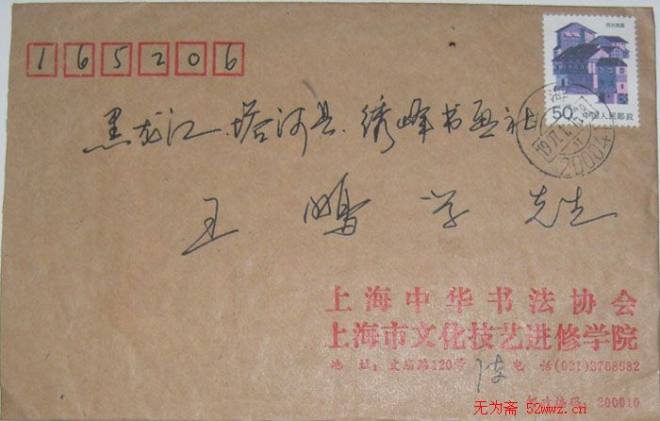 165206
黑龙江.塔河县.绣峰书画社
王鹏学先生
50分 中国人民邮政
上海中华书法协会
上海市文化技艺进修学院
地 址:文庙路120号 电 话(021)3768982
邮政编码:200010
无为斋 52wwz.cn